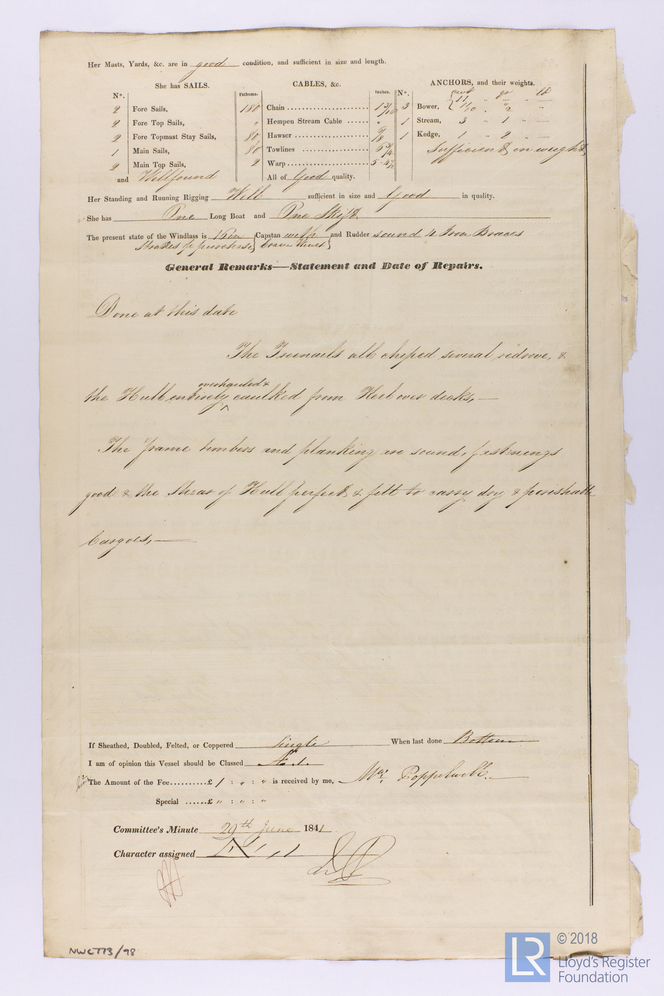 Her Masts, Yards, &c. are in good condition, and sufficient in size and length.
She has SAILS.
CABLES, &c.
ANCHORS, and their weights.
No.
Fathoms.
Inches.
No.
2 Fore Sails,
180 Chain
3 Bower,
2 Fore Top Sails,
Hempen Stream Cable
1 Stream, 3 - 1 -
2 Fore Topmast Stay Sails,
80 Hawser
1 Kedge, 1 - 2 -
1 Main Sails,
80 Towlines
Sufficient in weight
2 Main Top Sails,
2 Warp
and Well found
All of Good quality.
Her Standing and Running Rigging Well sufficient in size and Good in quality.
She has One Long Boat and One Skiff
The present state of the Windlass is Capstan and Rudder sound & Iron Braces
General Remarks—Statement and Date of Repairs.
Done at this date
The Treenails all several &
overhauled &
the Hull entirely caulked from Keel decks, —
The frame timbers and planking sound, fastenings
good & the of Hull perfect & fitt to carry dry & perishable
Cargoes, —
If Sheathed, Doubled, Felted, or Coppered Single When last done Bottom
I am of opinion this Vessel should be Classed
The Amount of the Fee..........£ 1 : 0 : 0 is received by me, Wm. Popplewell
Special ......£ 0 : 0 : 0
Committee's Minute 29th June 1841
Character assigned
NWCTTB/98
LR
© 2018
Lloyd's Register
Foundation